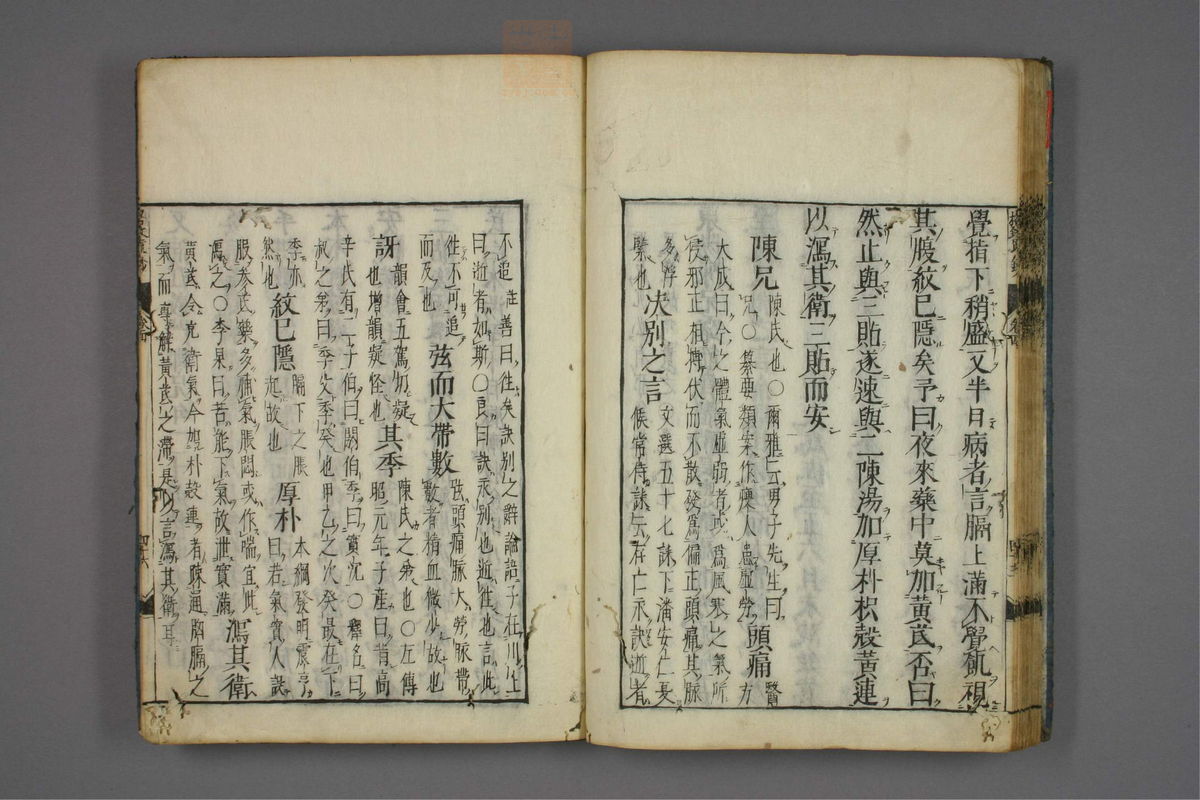 覺指下稍盛又半日病者言膈上滿不覺飢視
其腹紋已隱矣予曰夜來藥中莫加黃芪否曰
然止與三貼遂速與二陳湯加厚朴枳殼黃連
以瀉其衛三貼而安
陳兄 陳氏也〇爾雅云男子先生曰
兄〇纂要類案作瘦人虛勞 頭痛 醫
大成曰今之體氣虛弱者或爲風寒之氣所
侵邪正相搏伏而不散發爲偏正頭痛其脈
多浮
緊也 決別之言 文選五十七誄下潘安仁夏
侯常侍誄云存亡永訣逝者
不追 註善曰往矣訣別之辭論語子在川上
曰逝者如斯〇良曰訣永別也逝往也言此
往不可追
而及也 弦而大帶數 弦頭痛脈大勞脈帶
數者精血微少故也
訝 韻會五駕切疑
也增韻疑怪也 其季 陳氏之弟也〇左傳
昭元年子產曰昔高
辛氏有二子伯曰閼伯季曰實沉〇釋名曰
叔之弟曰季父季癸也甲乙之次癸最在下
季亦
然也 紋已隱 膈下之脹
起故也 厚朴 本綱發明震亨
曰若氣實人誤
服參芪藥多補氣脹悶或作喘宜此
瀉之〇李杲曰苦能下氣故泄實滿 瀉其衛
黃芪令充衛氣今加朴殼連者陳通胸膈之
氣而專解黃芪之滯是以言瀉其衛耳